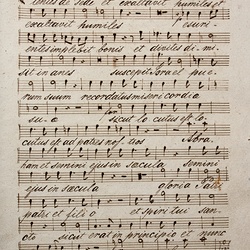 tentes de sede et exaltavit humiles et
exaltavit humiles Esuri
entes implebit bonis et divites di mi
sit in anes suscepit Israel pue
rum suum recordatus misericordia
su a sicut lo cutus est lo
cutus est ad patres nos tros Abra
ham et semini ejus in sæcula semini
ejus in sæcula gloria Patri
patri et fili o et spiri tui san
cto sicut erat in principio et nunc